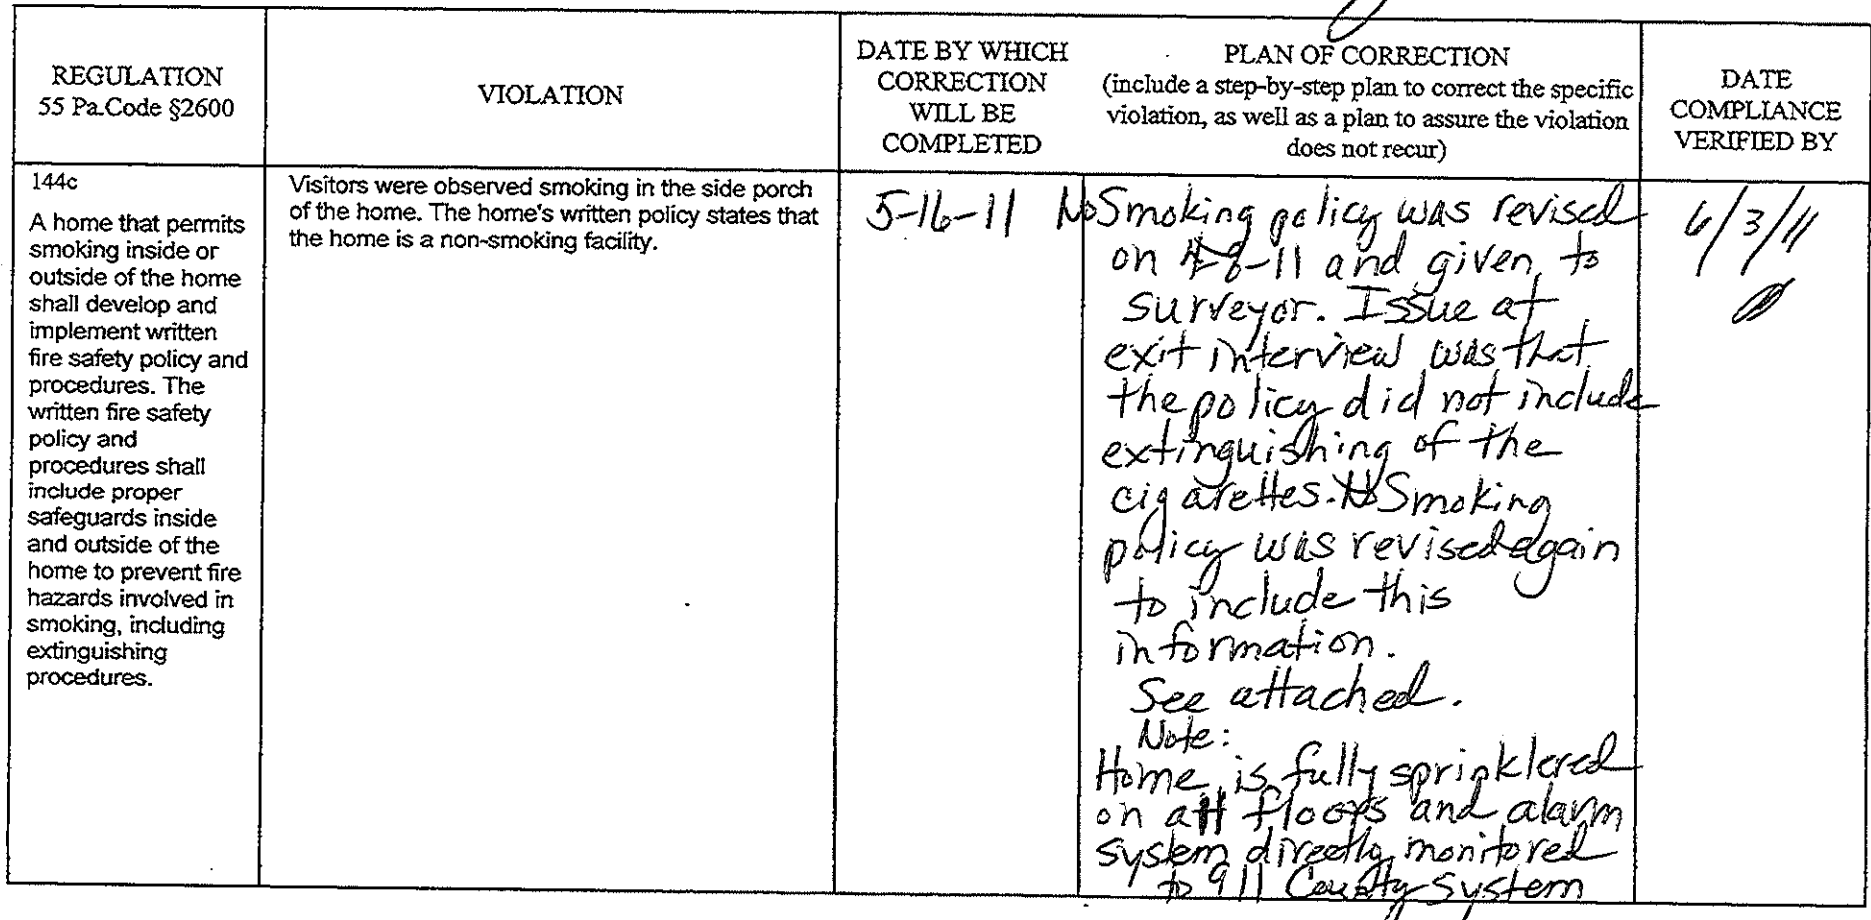 REGULATION
55 Pa.Code §2600
VIOLATION
DATE BY WHICH
CORRECTION
WILL BE
COMPLETED
PLAN OF CORRECTION
(include a step-by-step plan to correct the specific
violation, as well as a plan to assure the violation
does not recur)
DATE
COMPLIANCE
VERIFIED BY
144c
A home that permits
smoking inside or
outside of the home
shall develop and
implement written
fire safety policy and
procedures. The
written fire safety
policy and
procedures shall
include proper
safeguards inside
and outside of the
home to prevent fire
hazards involved in
smoking, including
extinguishing
procedures.
Visitors were observed smoking in the side porch
of the home. The home's written policy states that
the home is a non-smoking facility.
5-16-11
No Smoking policy was revised
on 4-8-11 and given to
surveyor. Issue at
exit interview was that
the policy did not include
extinguishing of the
cigarettes. No Smoking
policy was revised again
to include this
information.
See attached.
Note:
Home is fully sprinklered
on all floors and alarm
system directly monitored
to 911 County System
6/3/11